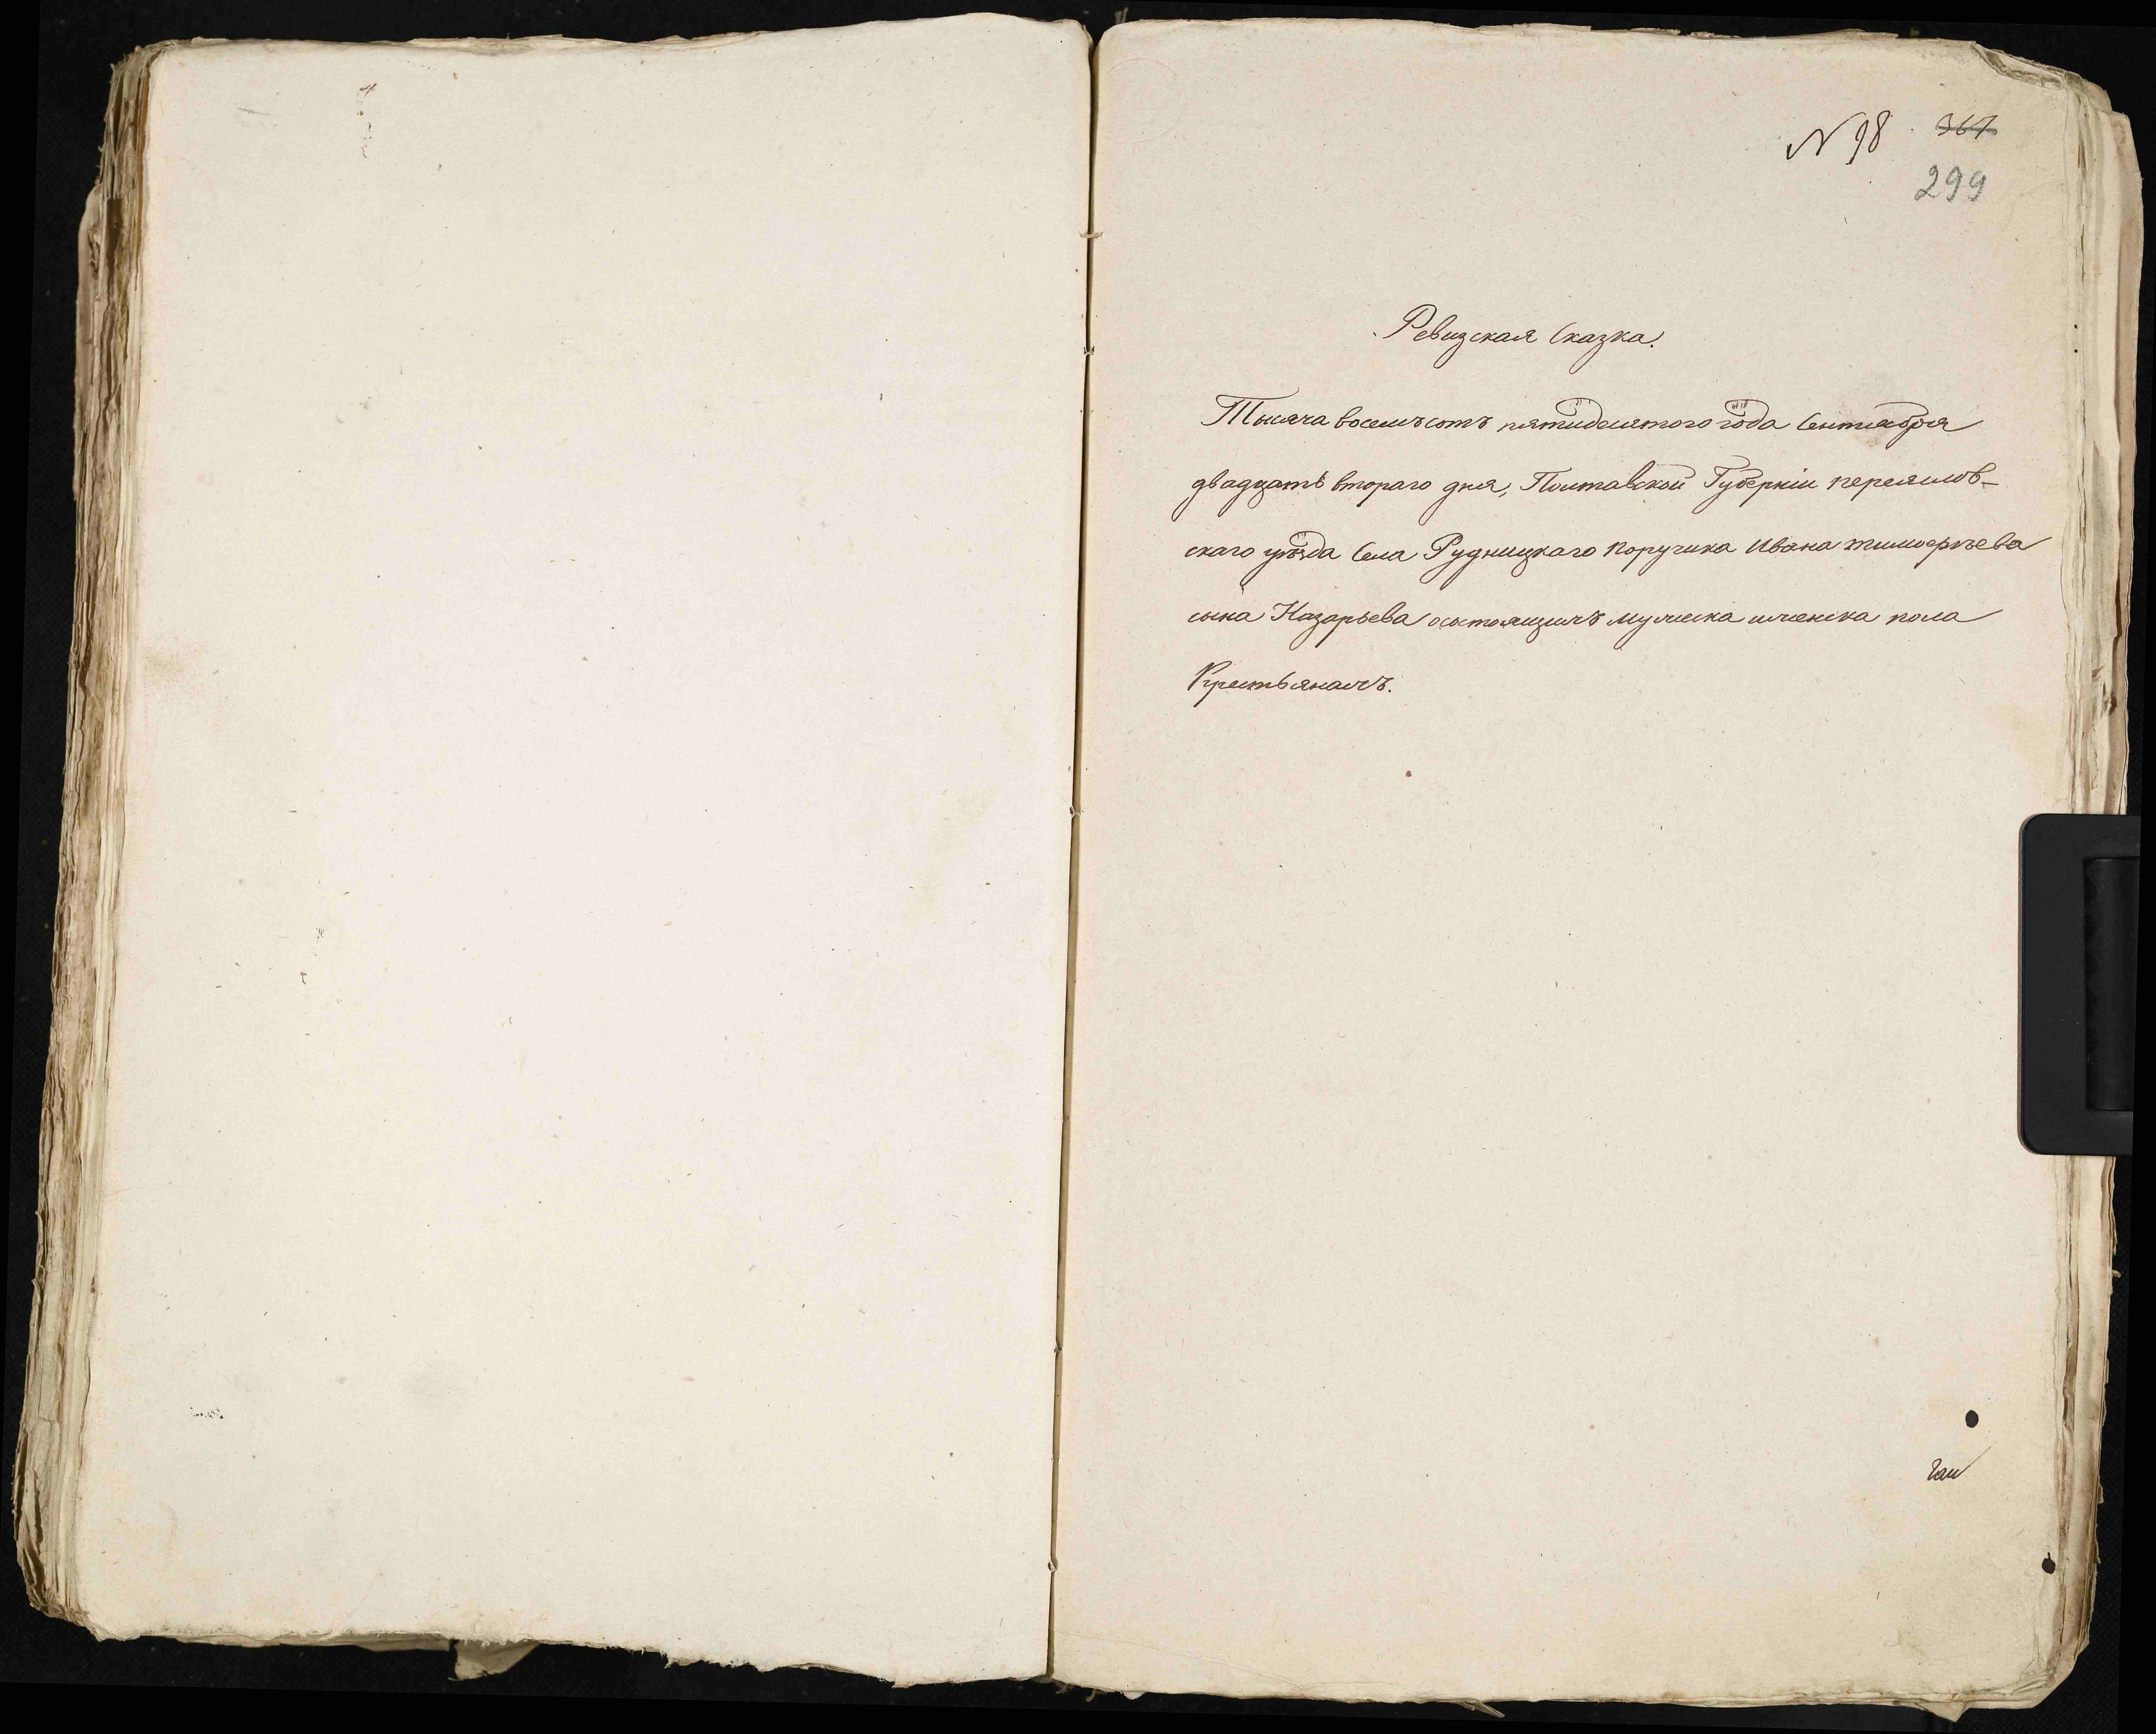 N 98
367
299
Ревизская Сказка.
Тысяча восемъ сотъ пятидесятого года Сентября
двадцать втораго дня, Полтавской Губерніи переяслов-
скаго уѣзда Села Рудницкаго Поручика Ивана тимофѣева
сына Назарьева о состоящихъ мужеска и женска пола
Крестьянахъ.